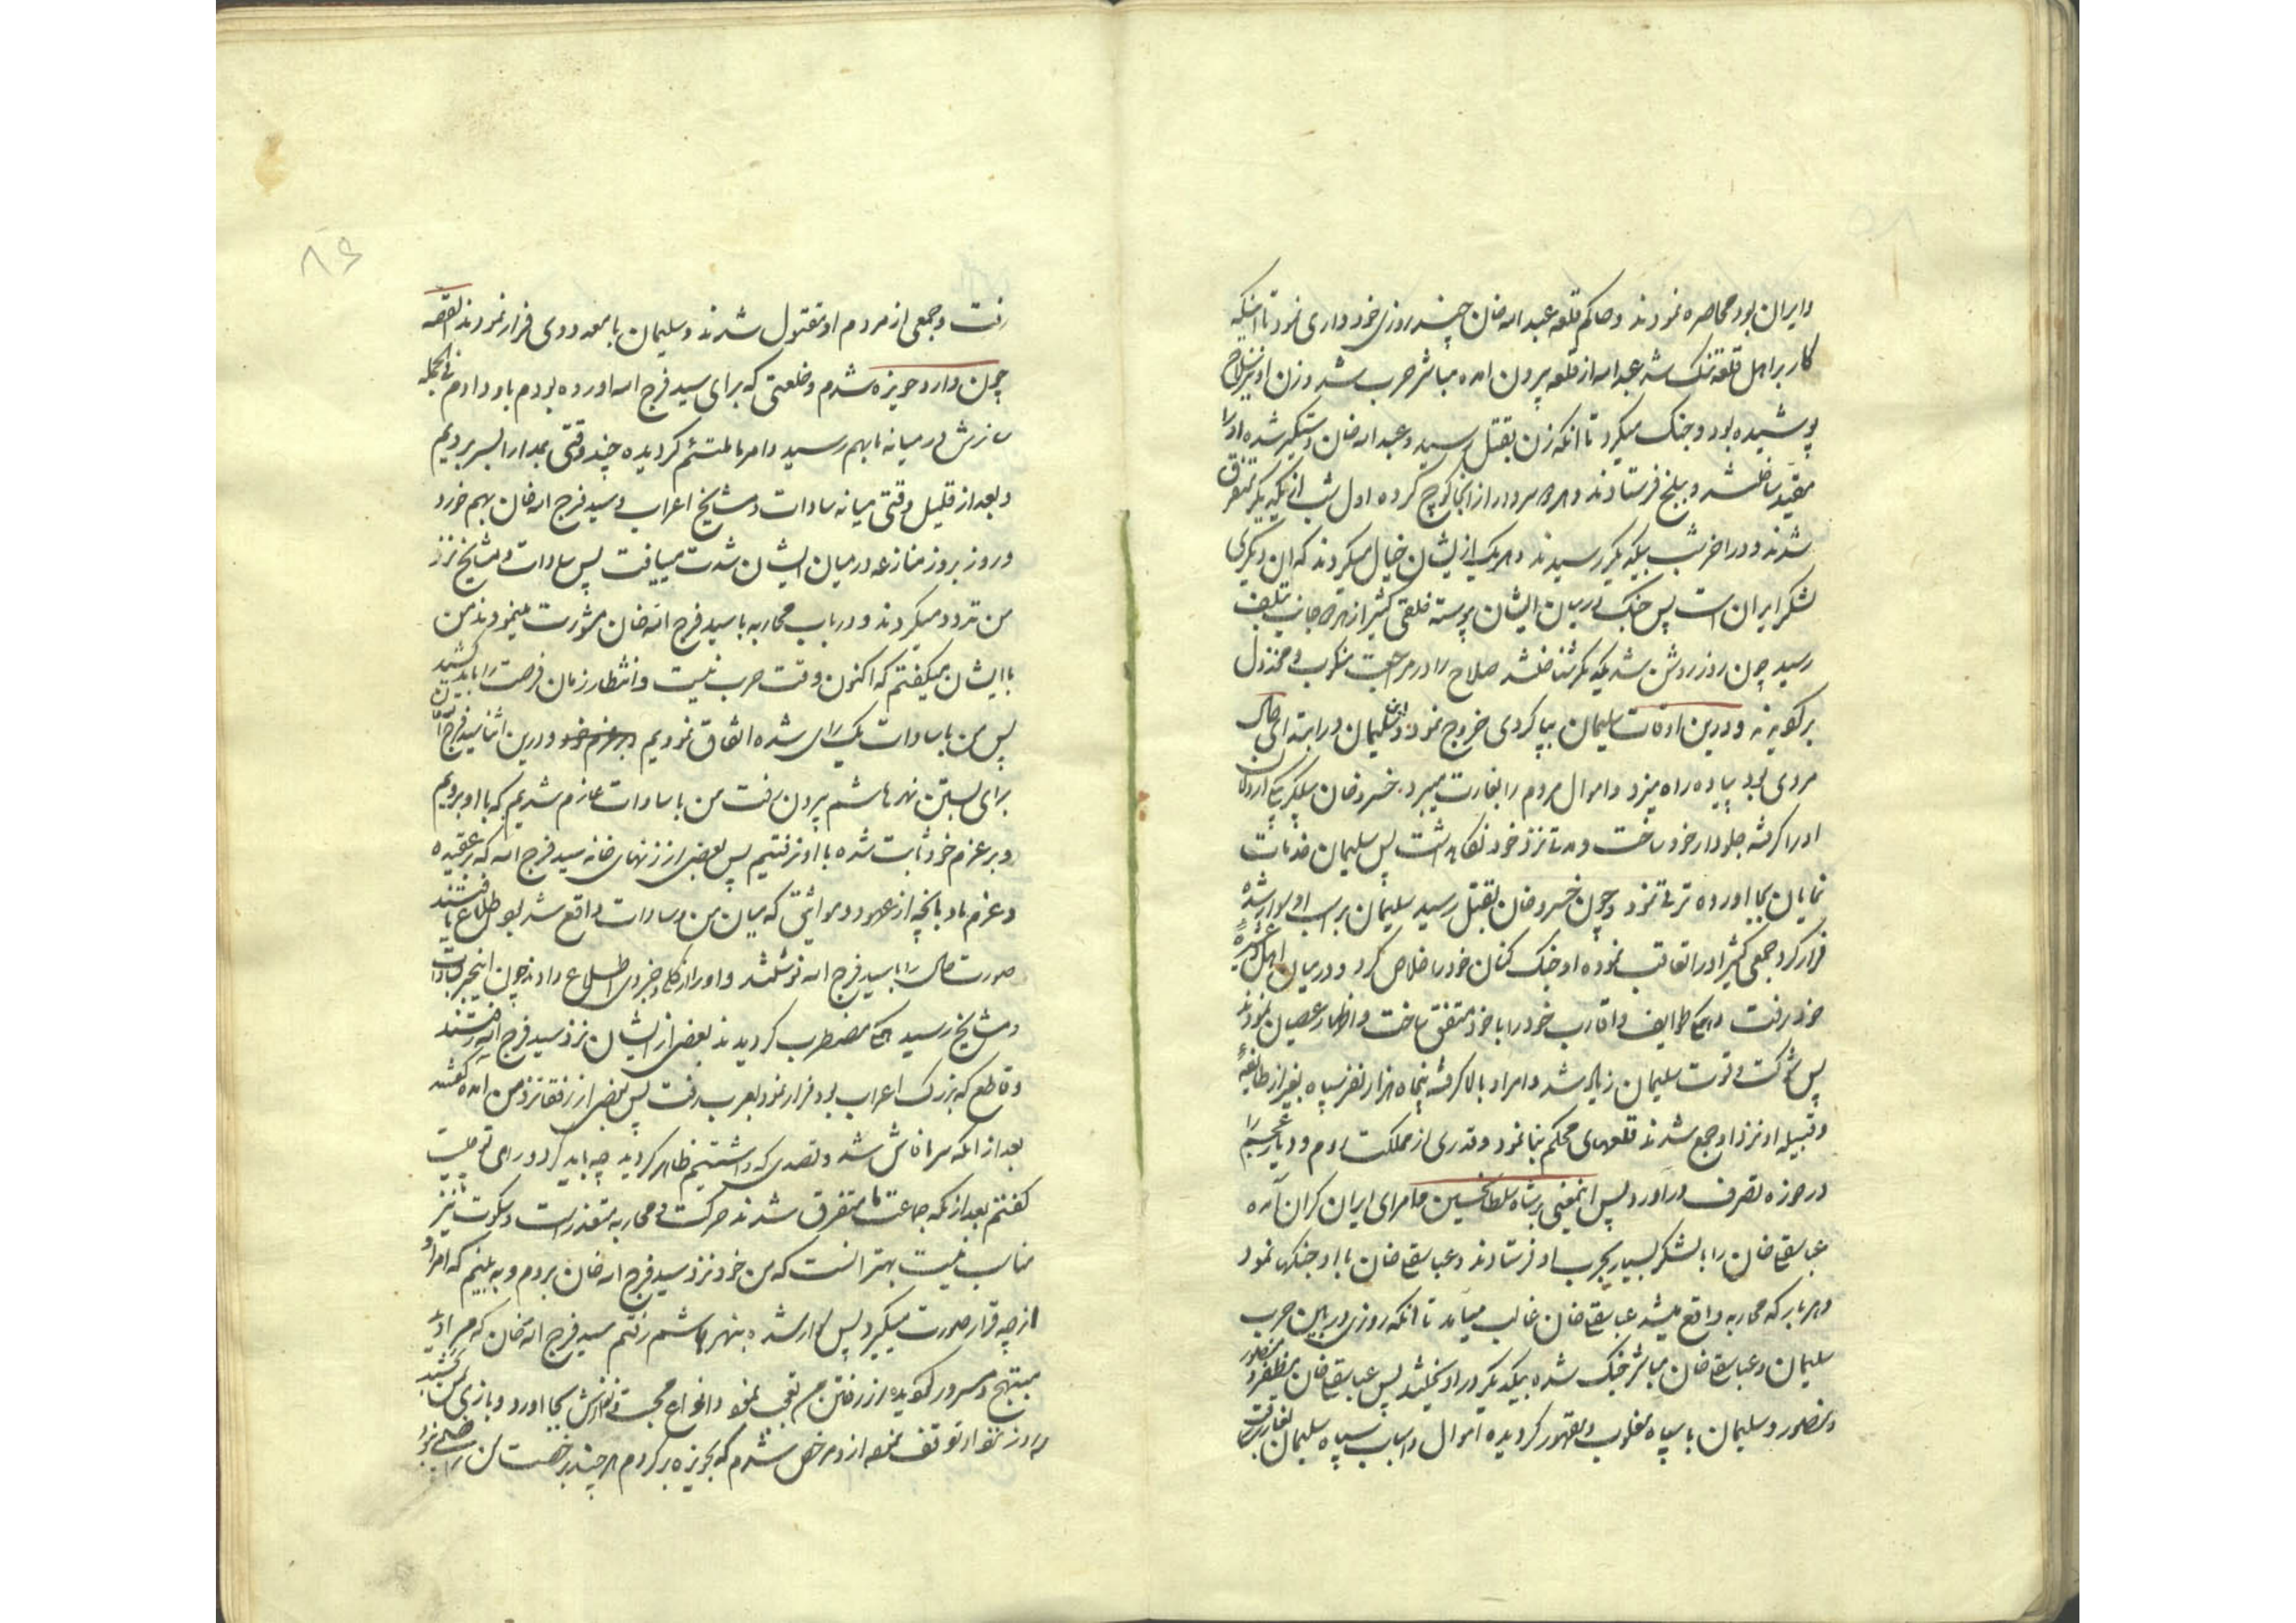 و ایران بود محاصره نمودند و حاکم قلعه عبد الله خان چند روزی خود داری نمود تا اینکه
کار بر اهل قلعه تنک شد عبد الله از قلعه بیرون امده مباشر حرب شد و زن او نیز سلاح
پوشیده بود و جنک میکرد تا انکه زن بقتل رسید و عبد الله خان دستکیر شده او را
مقید ساختند و ببلخ فرستادند و هر دو سردار از انجا کوچ کرده اول شب از یکدیکر متفرق
شدند و در اخر شب بیکدیکر رسیدند و هر یک از ایشان خیال میکردند که ان دیکری
لشکر ایران است پس جنک در میان ایشان پیوسته خلقی کثیر از هر دو جانب بتلف
رسید چون روز روشن شد یکدیکر شناختند صلاح را در مراجعت منکوب و مخذول
بر کویند و درین اوقات سلیمان ببا کردی خروج نمود و این سلیمان در ابتدای حال
مردی بود پیاده راه میزد و اموال مردم را بغارت میبرد خسرو خان بیکلربیکی اردلان
او را کرفته جلودار خود ساخت و مدتا نزد خود نکاه داشت پس سلیمان خدمات
نمایان بجا اورده ترقی نمود و چون خسرو خان بقتل رسید سلیمان بر اسب او سوار شده
فرار کرد جمعی کثیر او را تعاقب نموده او جنک کنان خود را خلاص کرد و در میان اهل و عشیره
خود رفت و طوایف و اقارب خود را با خود متفق ساخت و اظهار عصیان نمودند
پس شوکت و قوت سلیمان زیاد شد و امر او بالا کرفته پنجاه هزار نفر سپاه بغیر از طایفه
و قبیله او نزد او جمع شدند قلعهای محکم بنا نمود و قدری از مملکت روم و دیار عجم را
در حوزه تصرف دراورد پس اینمعنی بر شاه سلطانحسین و امرای ایران کران آمده
عباسقلی خان را با لشکر بسیار بحرب او فرستادند و عباسقلی خان با او جنکها نمود
و هر بار که محاربه واقع میشد عباسقلی خان غالب میآمد تا انکه روزی در بین حرب
سلیمان و عباسقلی خان مباشر جنک شده بیکدیکر در اویختند پس عباسقلی خان مظفر و
منصور و سلیمان با سپاه مغلوب و مقهور کردیده اموال و اسباب سپاه سلیمان بغارت
۸۶
رفت و جمعی از مردم او مقتول شدند و سلیمان با معدودی فرار نمودند القصه
چون وارد حویزه شدم و خلعتی که برای سید فرج الله اورده بودم باو دادم فی الجمله
سازش در میانه ما بهم رسید و امر ما ملتئم کردیده چند وقتی بمدارا بسر بردیم
و بعد از قلیل وقتی میانه سادات و مشایخ اعراب و سید فرج الله خان بهم خورد
و روز بروز منازعه در میان ایشان شدت مییافت پس سادات و مشایخ نزد
من تردد میکردند و در باب محاربه با سید فرج الله خان مشورت مینمودند من
با ایشان میکفتم که اکنون وقت حرب نیست و انتظار زمان فرصت را باید کشید
پس من با سادات یک رای شده اتفاق نمودیم و درین اثنا سید فرج الله
برای بستن نهر هاشم بیرون رفت من با سادات عازم شدیم که با او برویم
و بر عزم خود ثابت شده با او نرفتیم پس بعضی از زنهای خانه سید فرج الله که بر عقیده
و عزم ما و بانچه از عهود و مواثیق که میان من و سادات واقع شد بود اطلاع یافتند
صورت حال را با سید فرج الله نوشتند و او را از کلی و جزوی اطلاع دادند چون اینخبر بسادات
و مشایخ رسید مضطرب کردیدند بعضی از ایشان نزد سید فرج الله رفتند
و قاطع که بزرک اعراب بود فرار نمود بعرب رفت پس بعضی از رفقا نزد من آمده کفتند
بعد از انکه سر ما فاش شد و قصدی که داشتیم ظاهر کردید چه باید کرد و رای تو چیست
کفتم بعد از انکه جماعت ما متفرق شدند حرکت و محاربه متعذرست و سکوت نیز
مناسب نیست بهتر انست که من خود نزد سید فرج الله خان بروم و به بینم که امر او
از چه قرار صورت میکیرد پس سوار شده بنهر هاشم رفتم سید فرج الله خان که مرا دید
مبتهج و مسرور کردیده از رفتن من تعجب نمود و انواع محبت و نوازش بجا اورد و بازی
روز توقف نموده از و مرخص شدم که بحویزه بر کردم هر چند برخصت من راضی نبود